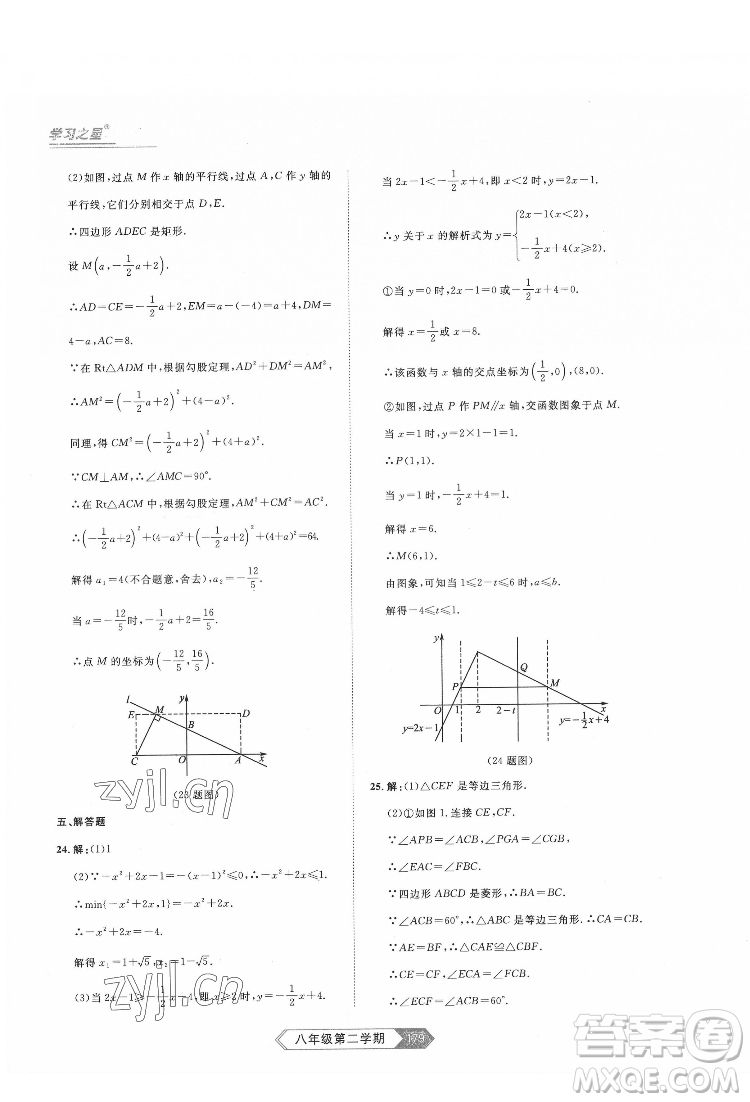 学习之星®
(2)如图,过点 M 作 x 轴的平行线,过点 A,C 作 y 轴的
平行线,它们分别相交于点 D,E.
∴四边形 ADEC 是矩形.
设 M(a,-1/2a+2).
∴AD=CE=-1/2a+2,EM=a-(-4)=a+4,DM=
4-a,AC=8.
∵在 Rt△ADM 中,根据勾股定理,AD²+DM²=AM²,
∴AM²=(-1/2a+2)²+(4-a)².
同理,得 CM²=(-1/2a+2)²+(4+a)².
∵CM⊥AM,∴∠AMC=90°.
∴在 Rt△ACM 中,根据勾股定理,AM²+CM²=AC².
∴(-1/2a+2)²+(4-a)²+(-1/2a+2)²+(4+a)²=64.
解得 a₁=4(不合题意,舍去),a₂=-12/5.
当 a=-12/5时,-1/2a+2=16/5.
∴点 M 的坐标为(-12/5,16/5).
l y
E M D
B
C O A x
(23 题图)
五、解答题
24. 解:(1)1
(2)∵-x²+2x-1=-(x-1)²≤0,∴-x²+2x≤1.
∴min{-x²+2x,
∴-x²+2x=-4.
解得 x₁=1+√5,x₂=1-√5.
(3)当 2x-1≥-1/2x+4,即 x≥2 时,y=-1/2x+4.
当 2x-1<-1/2x+4,即 x<2 时,y=2x-1.
∴y 关于 x 的解析式为 y={2x-1(x<2),
-1/2x+4(x≥2).
①当 y=0 时,y=2x-1=0 或 y=-1/2x+4=0.
解得 x=1/2或 x=8.
∴该函数与 x 轴的交点坐标为(1/2,0),(8,0).
②如图,过点 P 作 PM∥x 轴,交函数图象于点 M.
当 x=1 时,y=2×1-1=1.
∴P(1,1).
当 y=1 时,-1/2x+4=1.
解得 x=6.
∴M(6,1).
由图象,可知当 1≤2-t≤6 时,a≤b.
解得-4≤t≤1.
y
Q
P M
O 1 2 2-t x
y=2x-1 y=-1/2x+4
(24 题图)
25. 解:(1)△CEF 是等边三角形.
(2)①如图 1,连接 CE,CF.
∵∠APB=∠ACB=60°,∠PGA=∠CGB,
∴∠CAE=∠CBF.
∵四边形 ABCD 是菱形,∴AC=BC.
∵∠ACB=60°,∴△ACB 是等边三角形.
∵AE=BF,∴△CAE≌△CBF(SAS).
∴CE=CF,∠ACE=∠BCF.
∴∠ECF=∠ACB=60°.
八年级第二学期 179
zyjl.cn
zyjl.cn
答案圈
MXQE.COM